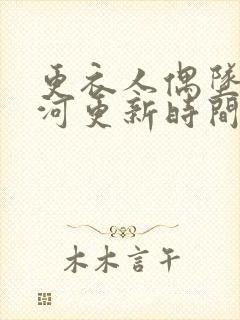 更衣人偶墜
河更新時間
木木言午